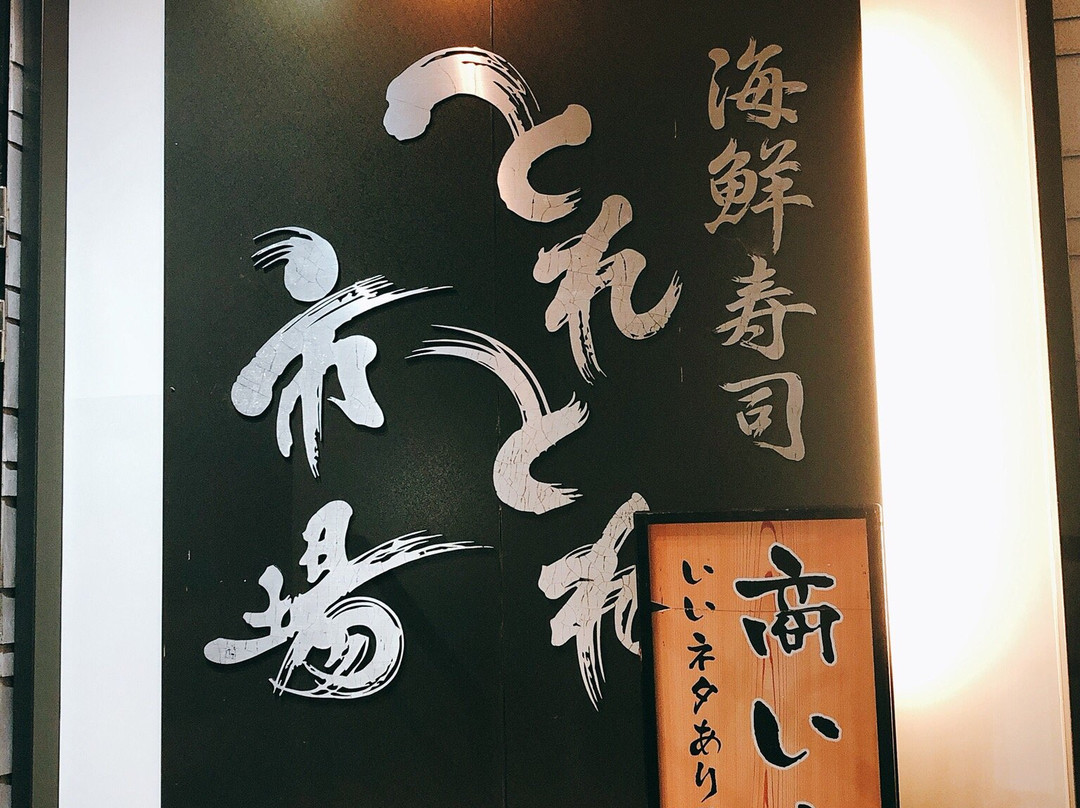 海鮮寿司
とれとれ
市場
商い
いいネタあり